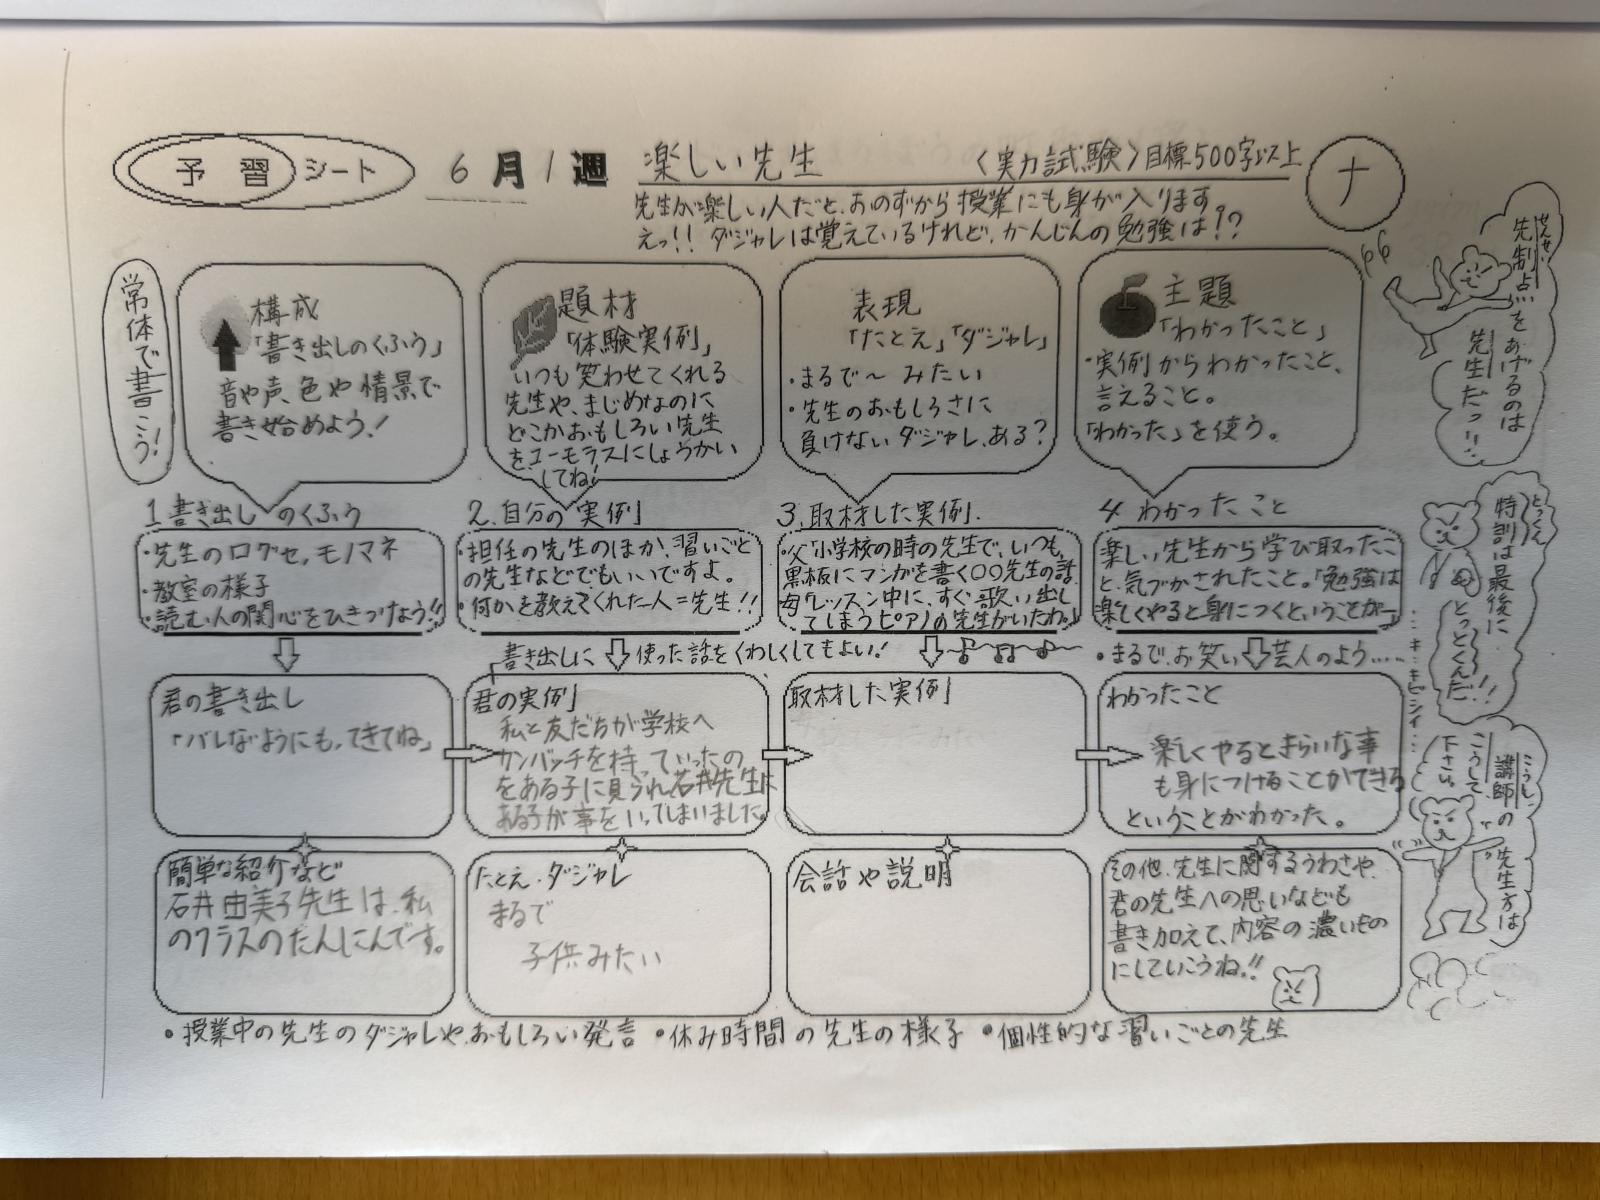 予習シート
6月1週
楽しい先生
〈実力試験〉目標500字以上
ナ
先生が楽しい人だと、おのずから授業にも身が入ります。
えっ!! ダジャレは覚えているけれど、かんじんの勉強は!?
常体で書こう!
構成
「書き出しのくふう」
音や声、色や情景で
書き始めよう!
題材
「体験実例」
いつも笑わせてくれる
先生や、まじめなのに
どこかおもしろい先生
をユーモラスにしょうかい
してね!
表現
「たとえ」「ダジャレ」
・まるで〜みたい
・先生のおもしろさに
負けないダジャレ、ある?
主題
「わかったこと」
・実例からわかったこと、
言えること。
「わかった」を使う。
せんせい
先制点をあげるのは
先生だっ!!
1 書き出しのくふう
・先生の口グセ、モノマネ
・教室の様子
・読む人の関心をひきつけよう!!
2.自分の実例
・担任の先生のほか、習いごと
の先生などでもいいですよ。
・何かを教えてくれた人=先生!!
3.取材した実例.
・父「小学校の時の先生で、いつも
黒板にマンガを書く〇〇先生の話
母「レッスン中に、すぐ歌い出し
てしまうピアノの先生がいたわ。」
4 わかったこと
楽しい先生から学び取ったこ
と、気づかされたこと。「勉強は
楽しくやると身につくということが…」
とっくん
特訓は最後に
とっとくんだ!!
…キ・キビシイ…
書き出しに使った話をくわしくしてもよい!
・まるで、お笑い芸人のよう……
君の書き出し
「バレないようにも、できてね」
君の実例
私と友だちが学校へ
カンバッチを持っていったの
をある子に見られ、石井先生に
ある子が事をいってしまいました。
取材した実例
わかったこと
楽しくやるときらいな事
も身につけることができる
ということがわかった。
こうし
講師の先生方は
こうして
下さい。
簡単な紹介など
石井由美子先生は、私
のクラスのたんにんです。
たとえ・ダジャレ
まるで
子供みたい
会話や説明
その他、先生に関するうわさや、
君の先生への思いなども
書き加えて、内容の濃いもの
にしていこうね!!
・授業中の先生のダジャレや、おもしろい発言 ・休み時間の先生の様子 ・個性的な習いごとの先生